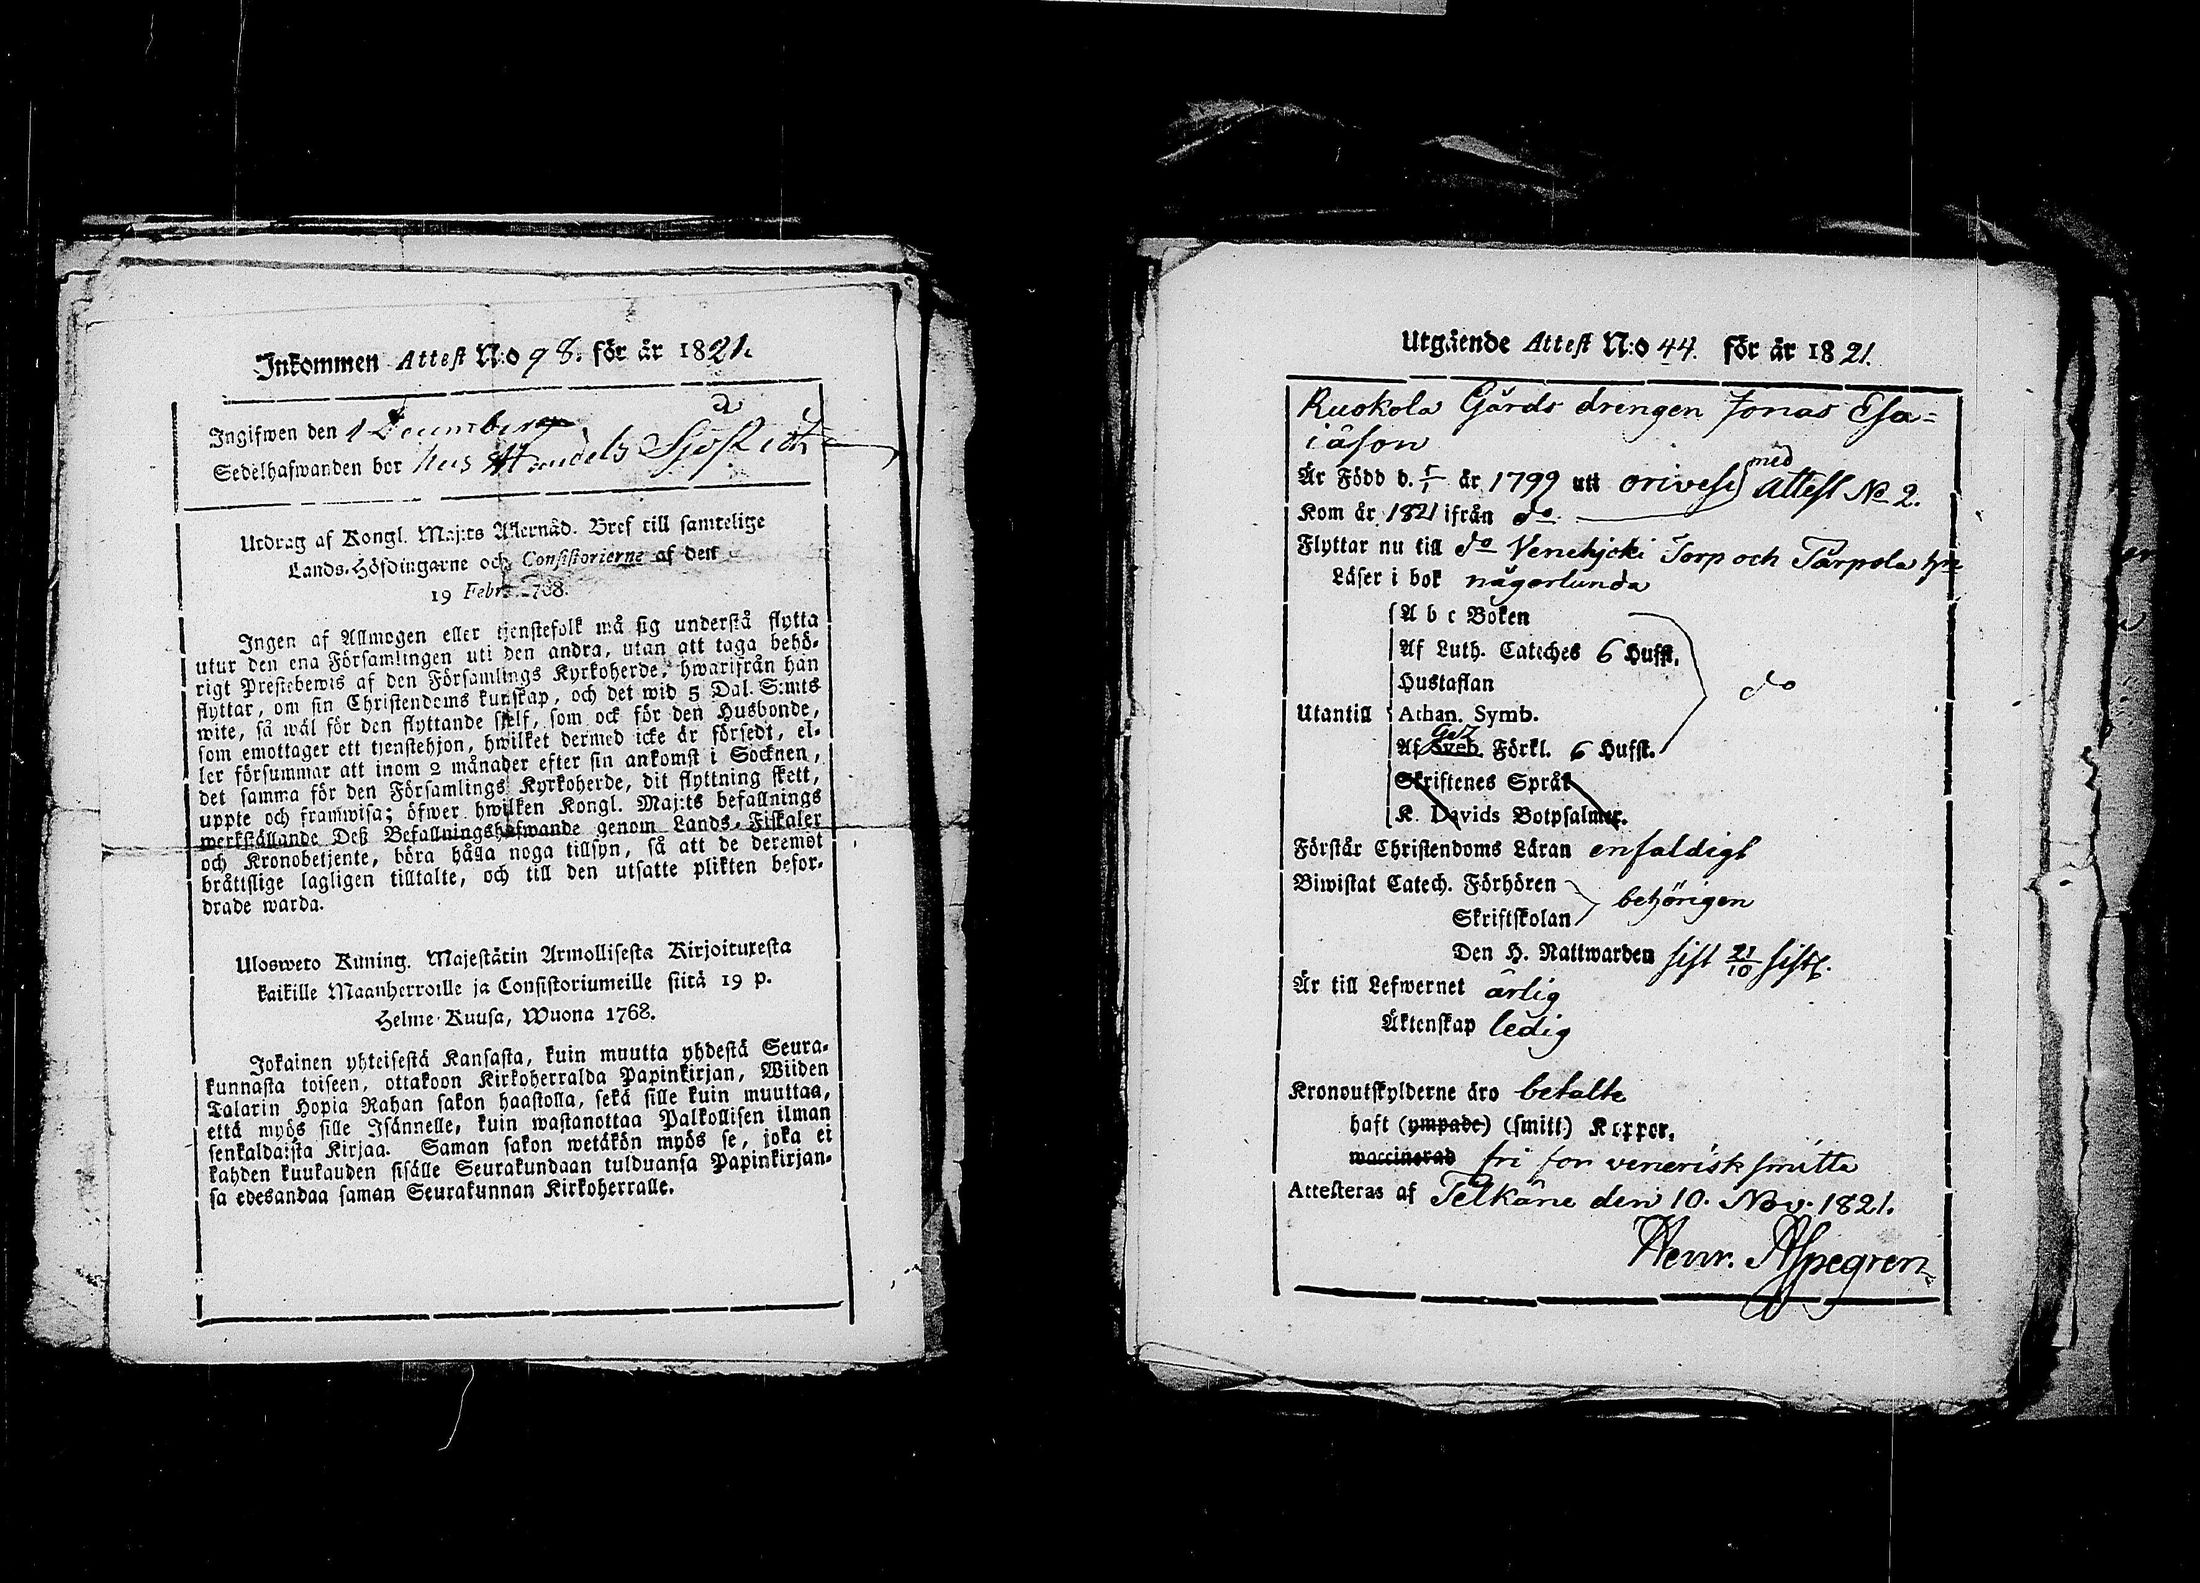 Inkommen Attest N:o 98. för år 1821.
Ingifwen den 1 December
Sedelhafwanden bor hus
Utdrag af Kongl. Maj:ts Allernåd. Bref till samtelige
Lands-Höfdingarne och Consistorierne af den
19 Febr. 1768.
Ingen af Allmogen eller tjenstefolk må sig understå flytta
utur den ena Församlingen uti den andra, utan att taga behö-
rigt Prestebewis af den Församlings Kyrkoherde, hwarifrån han
flyttar, om sin Christendoms kunskap, och det wid 5 Dal. S:mts
wite, så wäl för den flyttande sjelf, som ock för den Husbonde,
som emottager ett tjenstehjon, hwilket dermed icke är försedt, el-
ler försummar att inom 2 månader efter sin ankomst i Socknen,
det samma för den Församlings Kyrkoherde, dit flyttning skett,
uppte och framwisa; öfwer hwilken Kongl. Maj:ts befallnings
werkställande Deß Befallningshafwande genom Lands-Fiskaler
och Kronobetjente, böra hålla noga tillsyn, så att de deremot
bråttslige lagligen tilltalte, och till den utsatte plikten befor-
drade warda.
Ulosweto Kuning. Majestätin Armollisesta Kirjoituxesta
kaikille Maanherroille ja Consistoriumeille siitä 19 p.
Helme-Kuusa, Wuona 1768.
Jokainen yhteisestä Kansasta, kuin muutta yhdestä Seura-
kunnasta toiseen, ottakoon Kirkoherralda Papinkirjan, Wiiden
Talarin Hopia Rahan sakon haastolla, sekä sille kuin muuttaa,
että myös sille Isännelle, kuin wastanottaa Palkollisen ilman
senkaldaista Kirjaa. Saman sakon wetäkön myös se, joka ei
kahden kuukauden sisälle Seurakundaan tulduansa Papinkirjan-
sa edesandaa saman Seurakunnan Kirkoherralle.
Utgående Attest N:o 44. för år 1821.
Ruokola Gårds drengen Jonas Esa=
iäson
Är Född d. 5/1 år 1799 uti Orivesi med Attest No 2.
Kom år 1821 ifrån do
Flyttar nu till do Venehjoki Torp och Tarpola
Läser i bok någorlunda
A b c Boken
Af Luth. Cateches 6 Hufst.
Hustaflan
do
Utantill Athan. Symb.
Af Sveb. Förkl. 6 Hufst.
Skriftenes Språk
K. Davids Botpsalmer.
Förstår Christendoms Läran enfaldigt
Biwistat Catech. Förhören
behörigen
Skriftskolan
Den H. Nattwarden sist 21/10
Är till Lefwernet ärlig
Äktenskap ledig
Kronoutskylderne äro betalte
haft (ympade) (smitt) Koppor.
waccinerad fri for venerisk smitta
Attesteras af Pelkäne den 10. Nov. 1821.
Henr. Aspegren